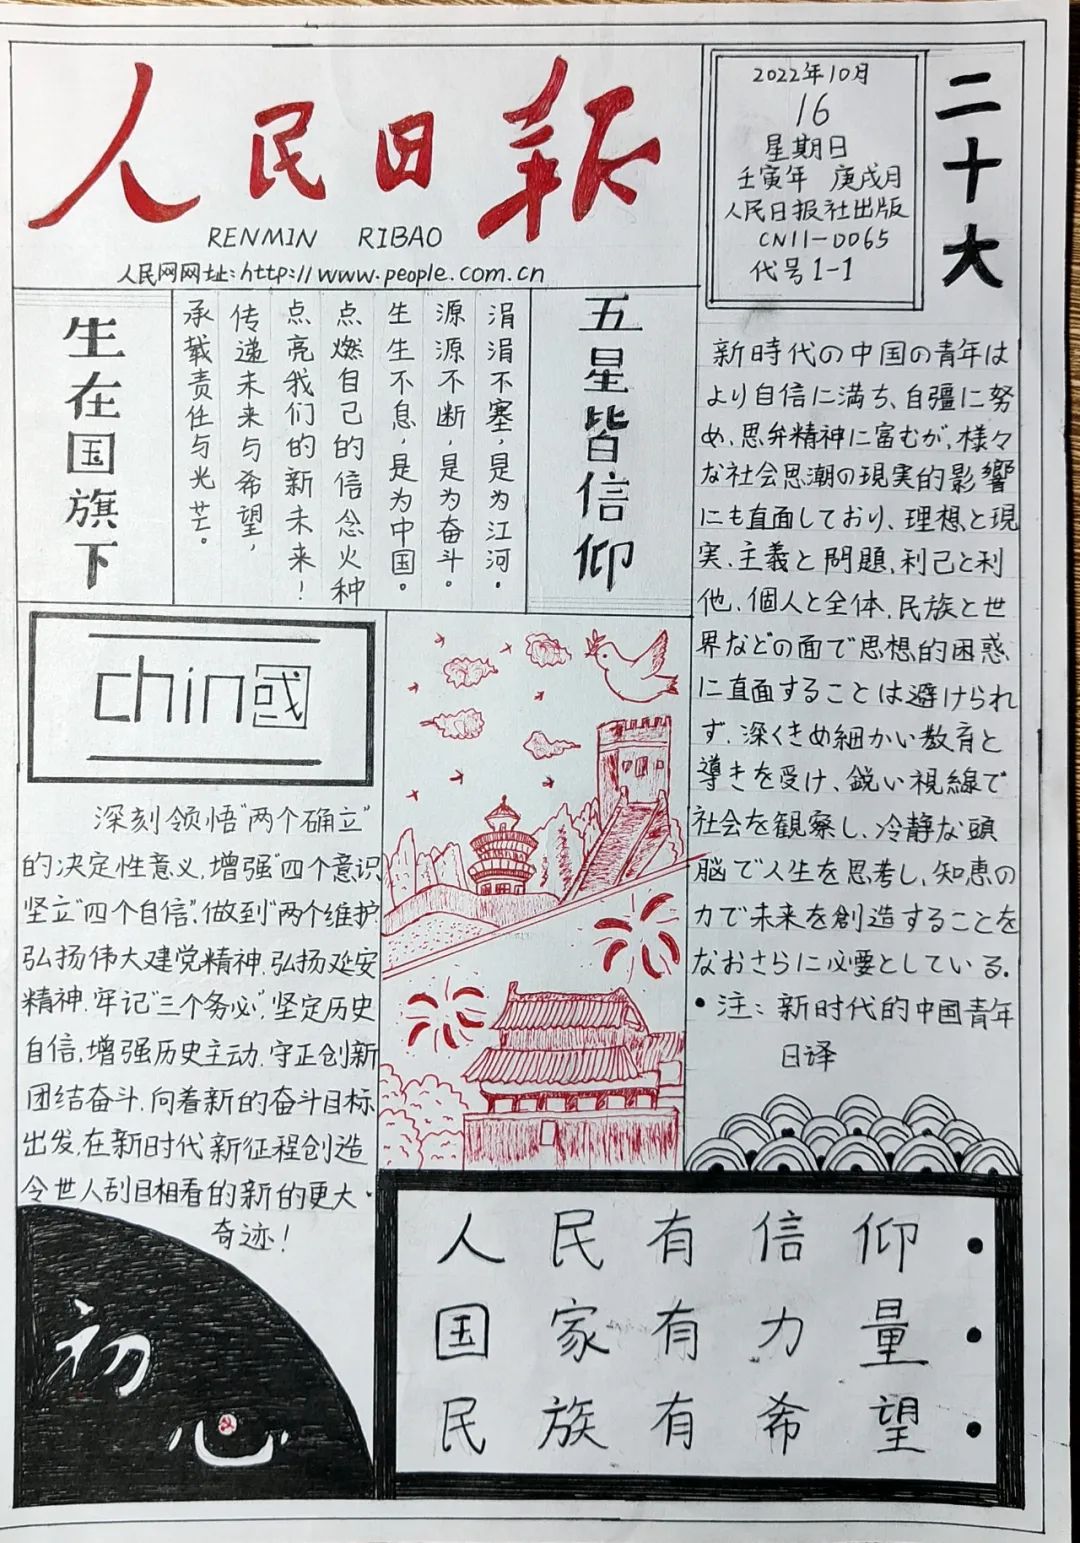 人民日報
RENMIN RIBAO
人民网网址:http://www.people.com.cn
2022年10月
16
星期日
壬寅年 庚戌月
人民日报社出版
CN11-0065
代号1-1
二十大
五星皆信仰
涓涓不塞,是为江河。
源源不断,是为奋斗。
生生不息,是为中国。
点燃自己的信念火种
点亮我们的新未来!
传递未来与希望,
承载责任与光芒。
生在国旗下
chin国
深刻领悟"两个确立"
的决定性意义,增强"四个意识
坚立"四个自信",做到"两个维护
弘扬伟大建党精神,弘扬延安
精神,牢记"三个务必",坚定历史
自信,增强历史主动,守正创新
团结奋斗,向着新的奋斗目标
出发,在新时代新征程创造
令世人刮目相看的新的更大
奇迹!
新時代の中国の青年は
より自信に満ち、自彊に努
め、思弁精神に富むが、様々
な社会思潮の現実的影響
にも直面しており、理想と現
実、主義と問題、利己と利
他、個人と全体、民族と世
界などの面で思想的困惑
に直面することは避けられ
ず、深くきめ細かい教育と
導きを受け、鋭い視線で
社会を観察し、冷静な頭
脳で人生を思考し、知恵の
力で未来を創造することを
なおさらに必要としている。
•注:新时代的中国青年
日译
初心
人民有信仰·
国家有力量·
民族有希望·